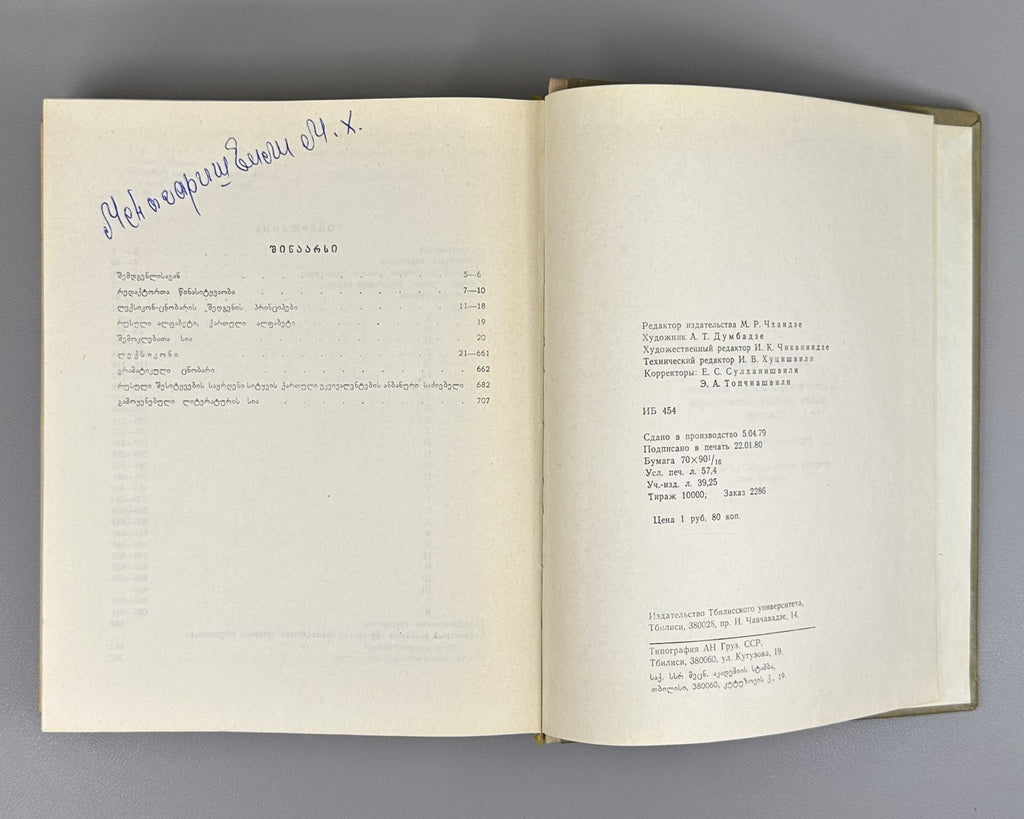 Ментешаришвили М. Х.
ᲨᲘᲜᲐᲐᲠᲡᲘ
შემდგენლისაგან . . . . . . . . . 5—6
რედაქტორთა წინასიტყვაობა . . . . . . . . 7—10
ლექსიკონ-ცნობარის შედგენის პრინციპები . . . . . 11—18
რუსული ალფაბეტი, ქართული ალფაბეტი . . . . . . 19
შემოკლებათა სია . . . . . . . . . 20
ლექსიკონი . . . . . . . . . 21—661
გრამატიკული ცნობარი . . . . . . . . 662
რუსული შესიტყვების საყრდენი სიტყვის ქართული ეკვივალენტების ანბანური საძიებელი 682
გამოყენებული ლიტერატურის სია . . . . . . . 707
Редактор издательства М. Р. Чхаидзе
Художник А. Т. Думбадзе
Художественный редактор И. К. Чиквинидзе
Технический редактор И. В. Хуцишвили
Корректоры: Е. С. Сулханишвили
Э. А. Топчиашвили
ИБ 454
Сдано в производство 5.04.79
Подписано в печать 22.01.80
Бумага 70×90¹/₁₆
Усл. печ. л. 57,4
Уч.-изд. л. 39,25
Тираж 10000; Заказ 2286
Цена 1 руб. 80 коп.
Издательство Тбилисского университета,
Тбилиси, 380028, пр. И. Чавчавадзе, 14.
Типография АН Груз. ССР,
Тбилиси, 380060, ул. Кутузова, 19.
საქ. სსრ მეცნ. აკადემიის სტამბა,
თბილისი, 380060, კუტუზოვის ქ., 19.